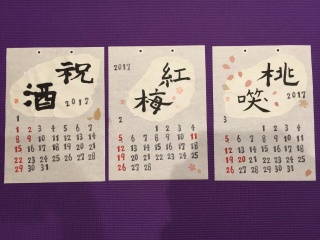 祝酒
2017
1
1 2 3 4 5 6 7
8 9 10 11 12 13 14
15 16 17 18 19 20 21
22 23 24 25 26 27 28
29 30 31
2017
紅梅
2
1 2 3 4
5 6 7 8 9 10 11
12 13 14 15 16 17 18
19 20 21 22 23 24 25
26 27 28
桃咲
2017
3
1 2 3 4
5 6 7 8 9 10 11
12 13 14 15 16 17 18
19 20 21 22 23 24 25
26 27 28 29 30 31